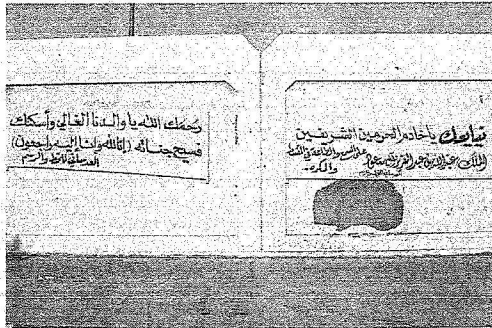 نبايعك ياخادم الحرمين الشريفين
الملك عبدالله بن عبدالعزيز على السمع والطاعة في المنشط
والمكره..
رحمك الله يا والدنا الغالي وأسكنك
فسيح جناته (إنا لله وإنا إليه راجعون)
للخط والرسم